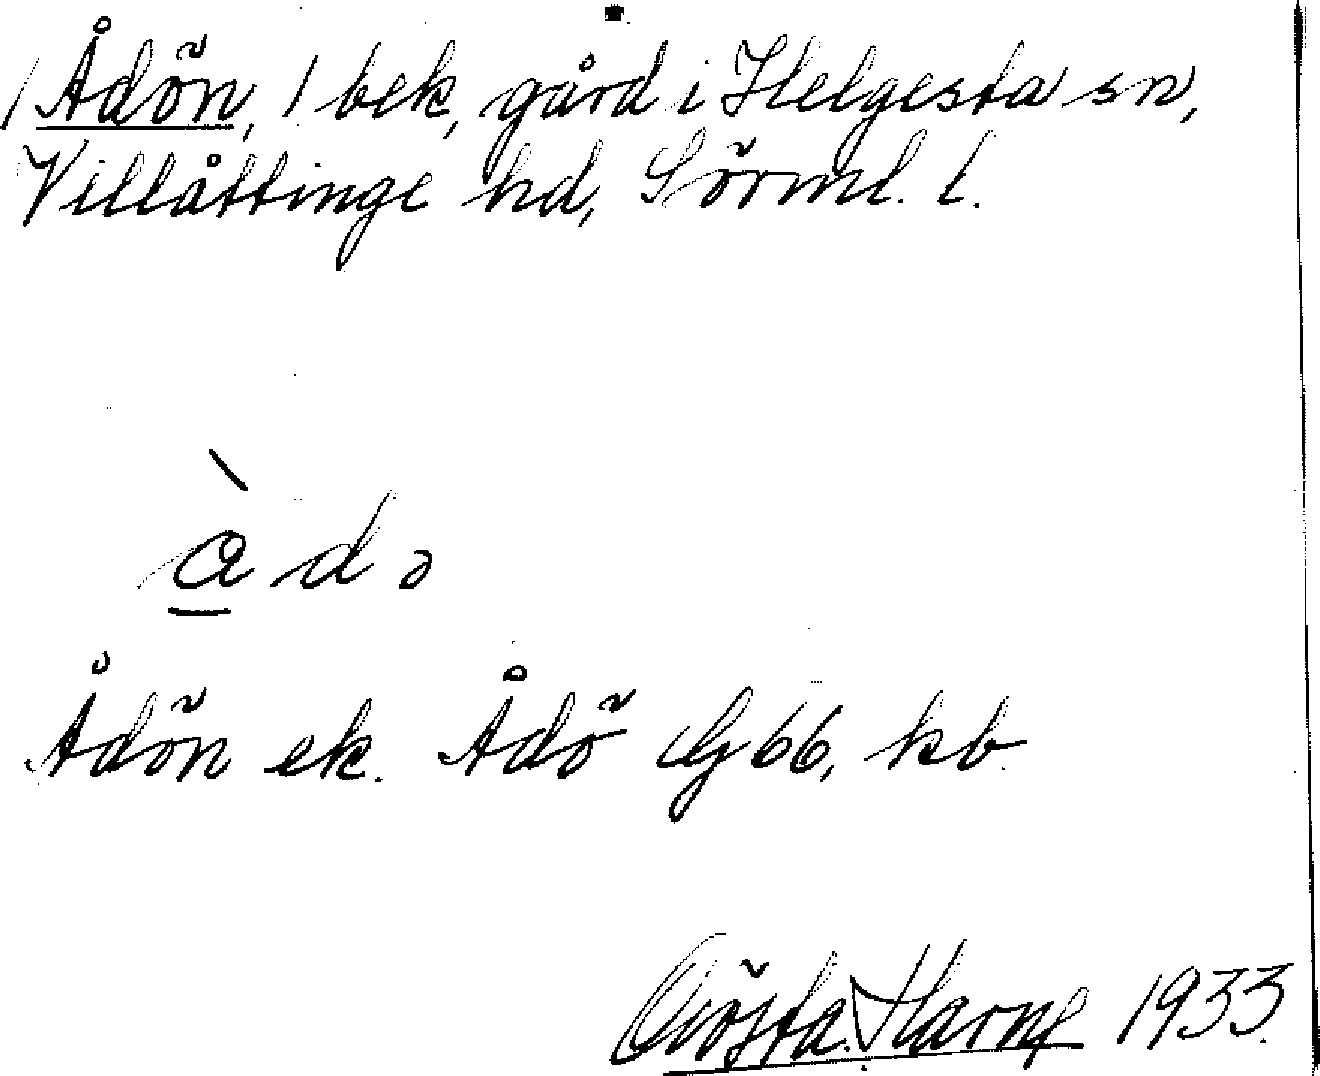 Ådön, 1 bek, gård i Helgesta sn,
Villåttinge hd, Sörml. l.
å̀ d ə
Ådön ek. Ådö Gf 66, kb.
Gösta Harne 1933.